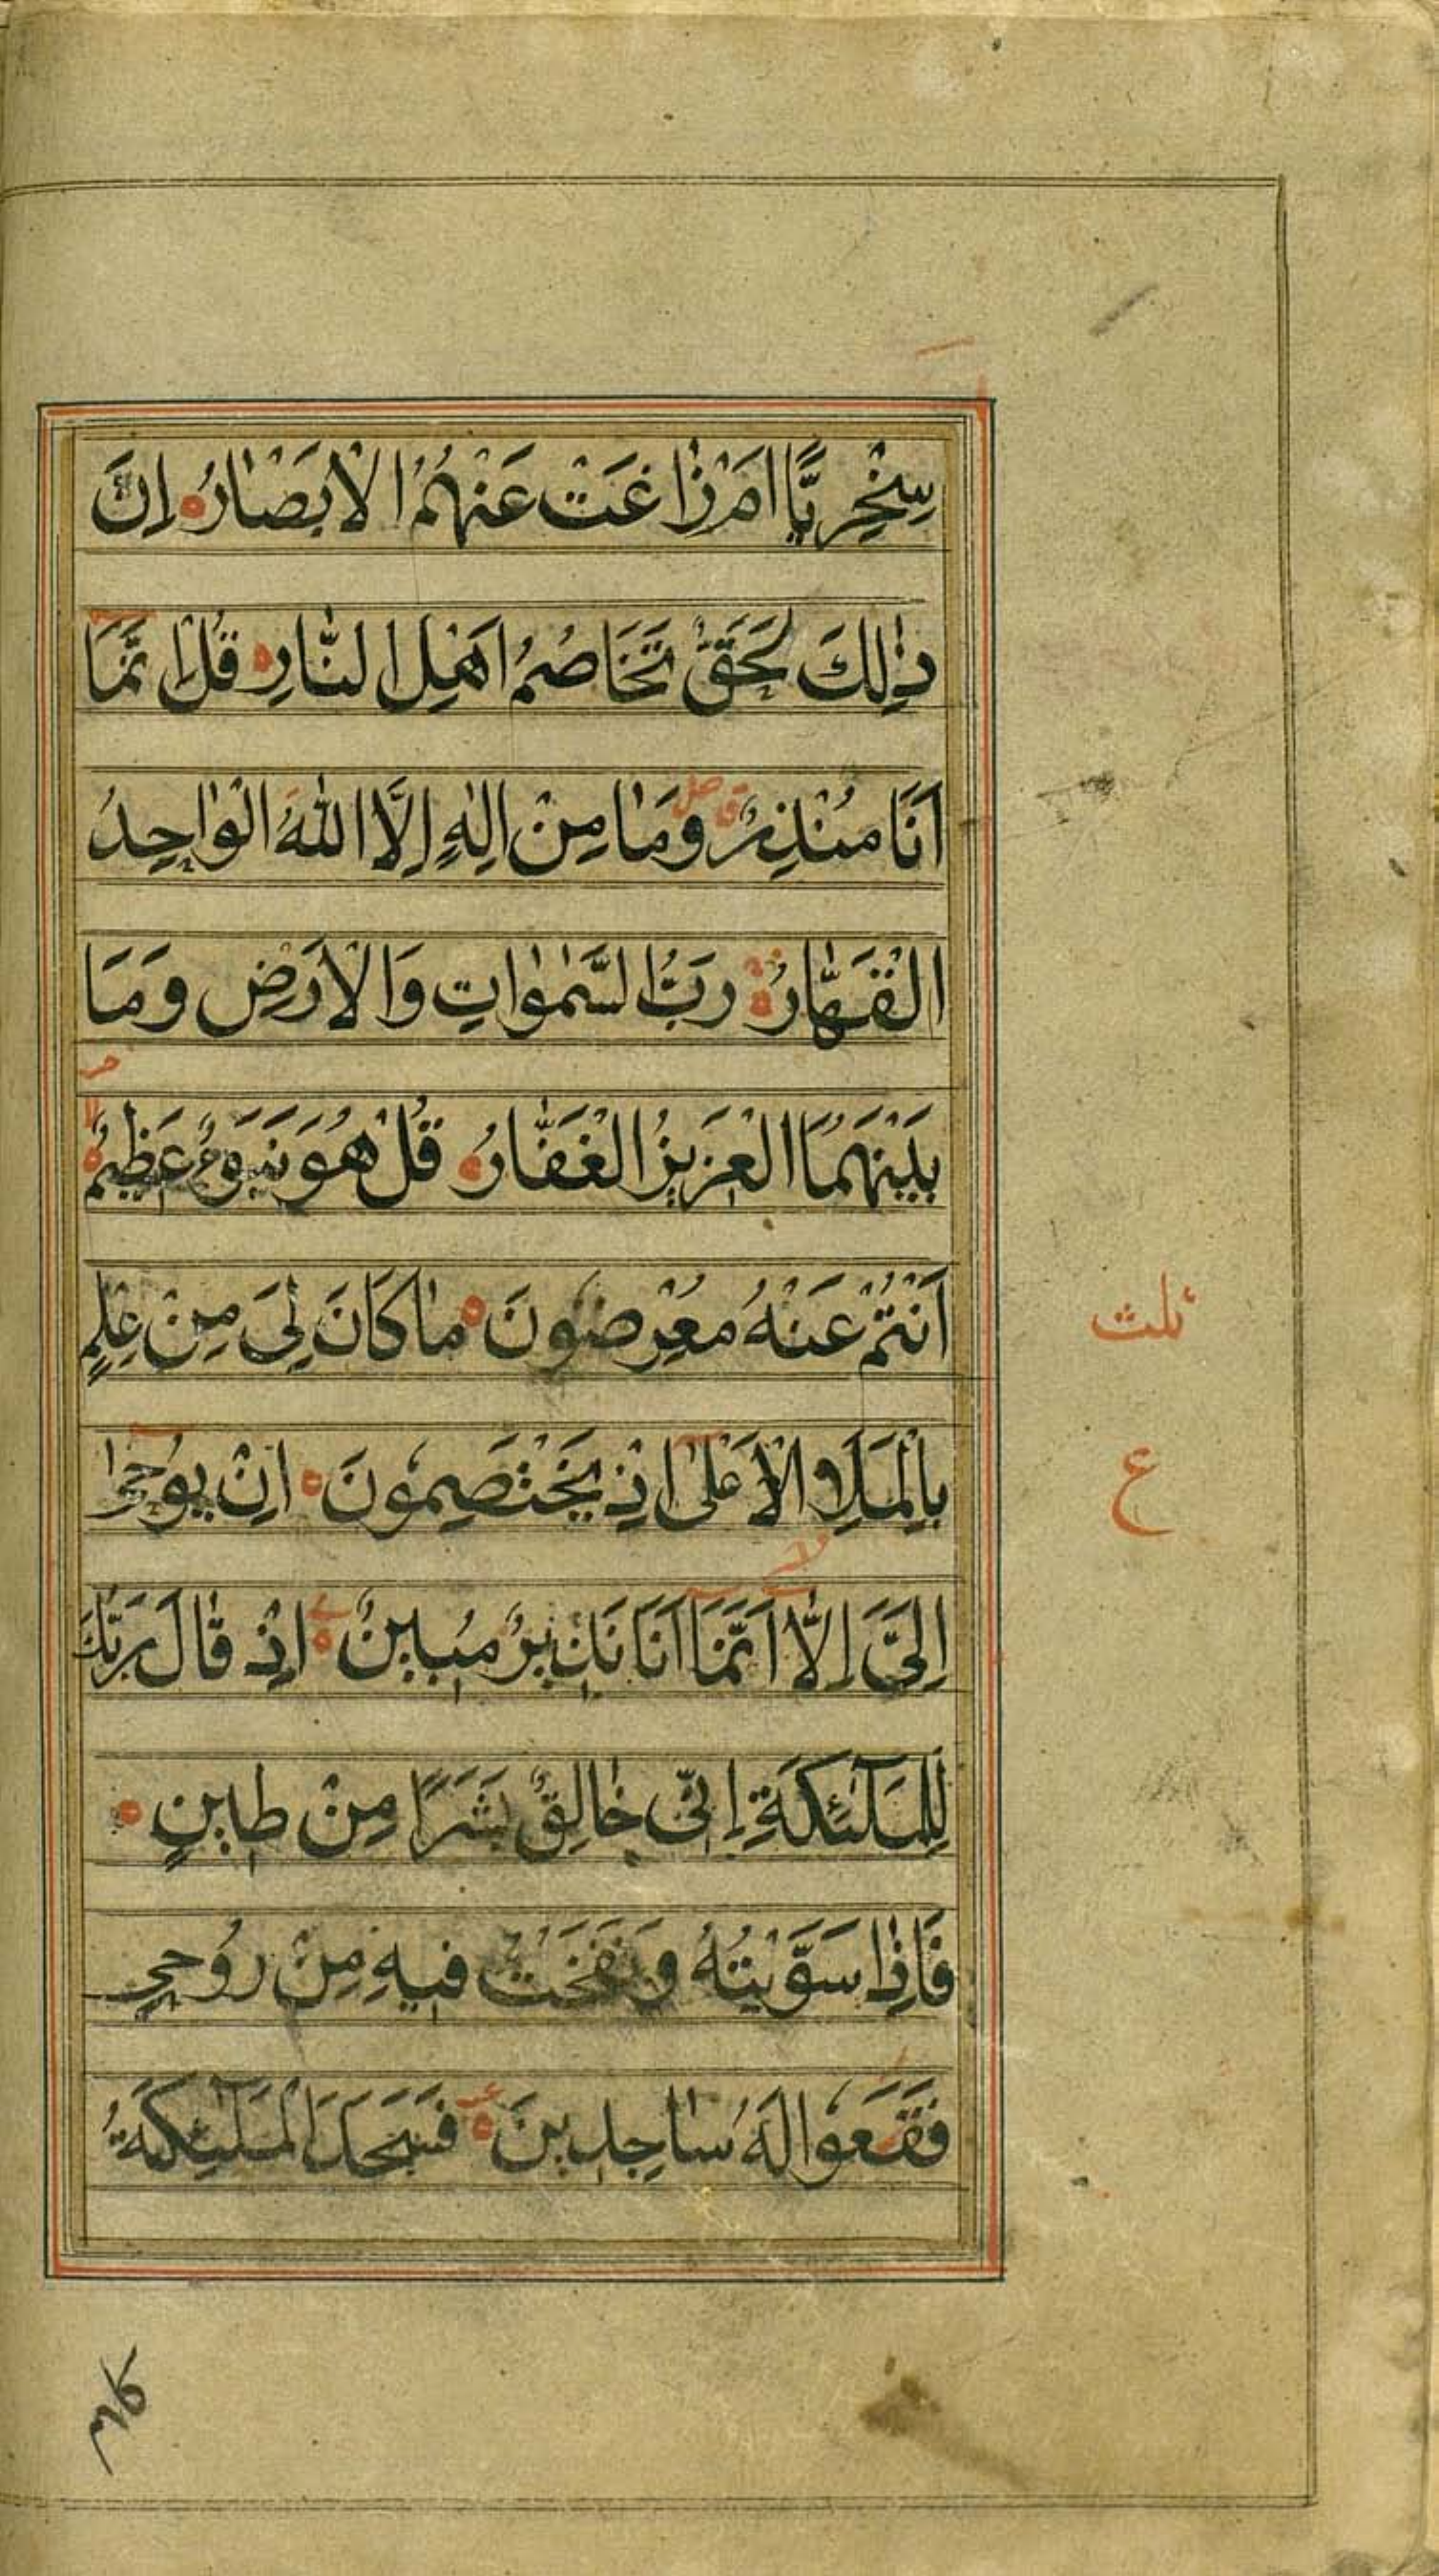 سِخْرِيًّا اَمْ زَاغَتْ عَنْهُمُ الْاَبْصَارُ اِنَّ
ذٰلِكَ لَحَقٌّ تَخَاصُمُ اَهْلِ النَّارِ قُلْ اِنَّمَا
اَنَا مُنْذِرٌ وَمَا مِنْ اِلٰهٍ اِلَّا اللّٰهُ الْوَاحِدُ
الْقَهَّارُ رَبُّ السَّمٰوَاتِ وَالْاَرْضِ وَمَا
بَيْنَهُمَا الْعَزِيزُ الْغَفَّارُ قُلْ هُوَ نَبَؤٌا عَظِيمٌ
اَنْتُمْ عَنْهُ مُعْرِضُونَ مَا كَانَ لِيَ مِنْ عِلْمٍ
بِالْمَلَاِ الْاَعْلٰى اِذْ يَخْتَصِمُونَ اِنْ يُوحٰى
اِلَيَّ اِلَّا اَنَّمَا اَنَا نَذِيرٌ مُبِينٌ اِذْ قَالَ رَبُّكَ
لِلْمَلٰٓئِكَةِ اِنِّى خَالِقٌ بَشَرًا مِنْ طِينٍ
فَاِذَا سَوَّيْتُهُ وَنَفَخْتُ فِيهِ مِنْ رُوحِى
فَقَعُوا لَهُ سَاجِدِينَ فَسَجَدَ الْمَلٰٓئِكَةُ
ثلث
ع
كلهم